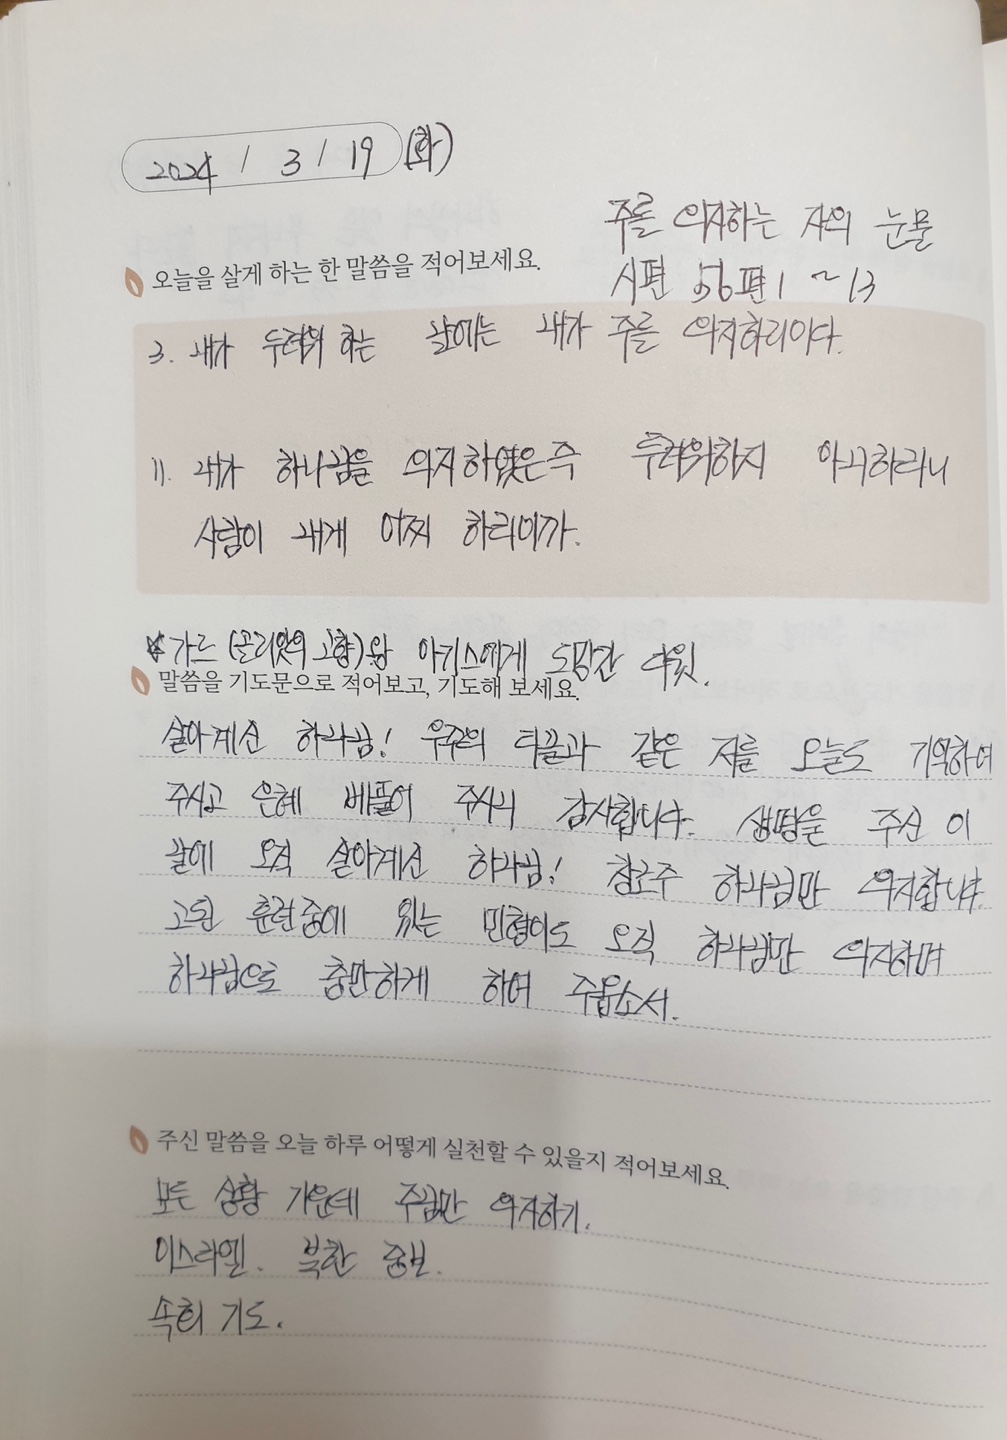 2024 / 3 / 19 (화)
주를 의지하는 자의 눈물
오늘을 살게 하는 한 말씀을 적어보세요.
시편 56편 1 ~ 13
3. 내가 두려워 하는 날에는 내가 주를 의지하리이다.
11. 내가 하나님을 의지하였은즉 두려워하지 아니하리니
사람이 내게 어찌 하리이까.
가드 (골리앗의 고향)왕 아키스에게 도망간 다윗.
말씀을 기도문으로 적어보고, 기도해 보세요.
살아계신 하나님! 우주의 티끌과 같은 저를 오늘도 기억하여
주시고 은혜 베풀어 주시니 감사합니다. 생명을 주신 이
날에 오직 살아계신 하나님! 창조주 하나님만 의지합니다.
고된 훈련중에 있는 민형이도 오직 하나님만 의지하며
하나님으로 충만하게 하여 주옵소서.
주신 말씀을 오늘 하루 어떻게 실천할 수 있을지 적어보세요.
모든 상황 가운데 주님만 의지하기.
이스라엘. 북한 중보.
속회 기도.